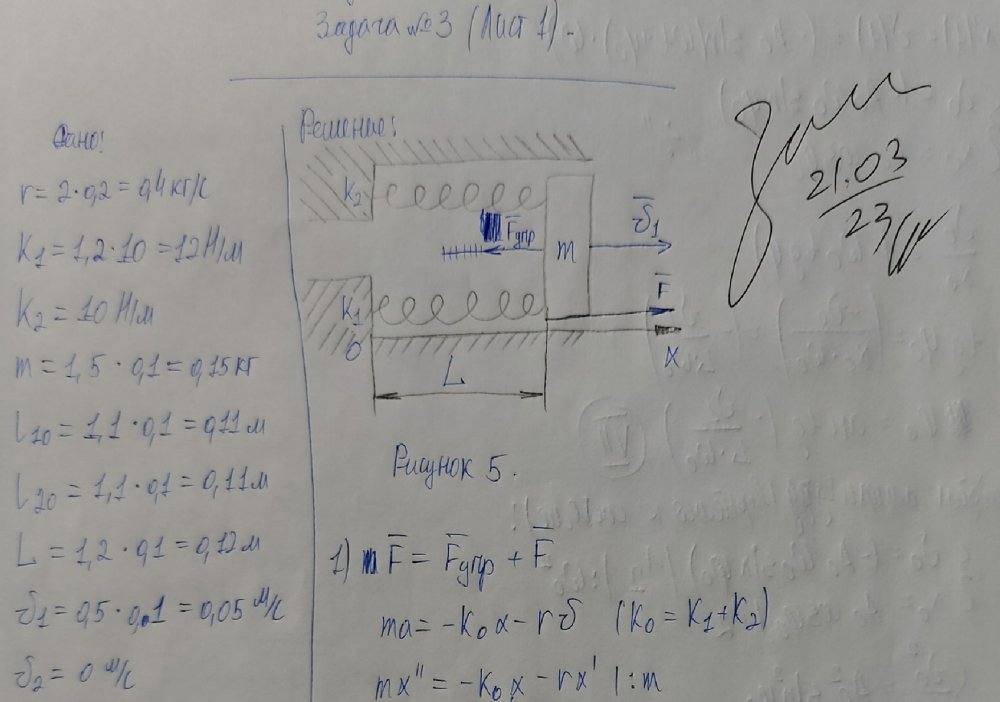 Задача №3 (Лист 1).
Дано:
r = 2·0,2 = 0,4 кг/с
K1 = 1,2·10 = 12 Н/м
K2 = 10 Н/м
m = 1,5·0,1 = 0,15 кг
l10 = 1,1·0,1 = 0,11 м
l20 = 1,1·0,1 = 0,11 м
L = 1,2·0,1 = 0,12 м
υ1 = 0,5·0,1 = 0,05 м/с
υ2 = 0 м/с
Решение:
K2
Fупр
m
υ1
K1
F
0
x
L
Рисунок 5.
1) F = Fупр + F
ma = -K0x - rυ (K0 = K1+K2)
mx'' = -K0x - rx' |:m
21.03
23